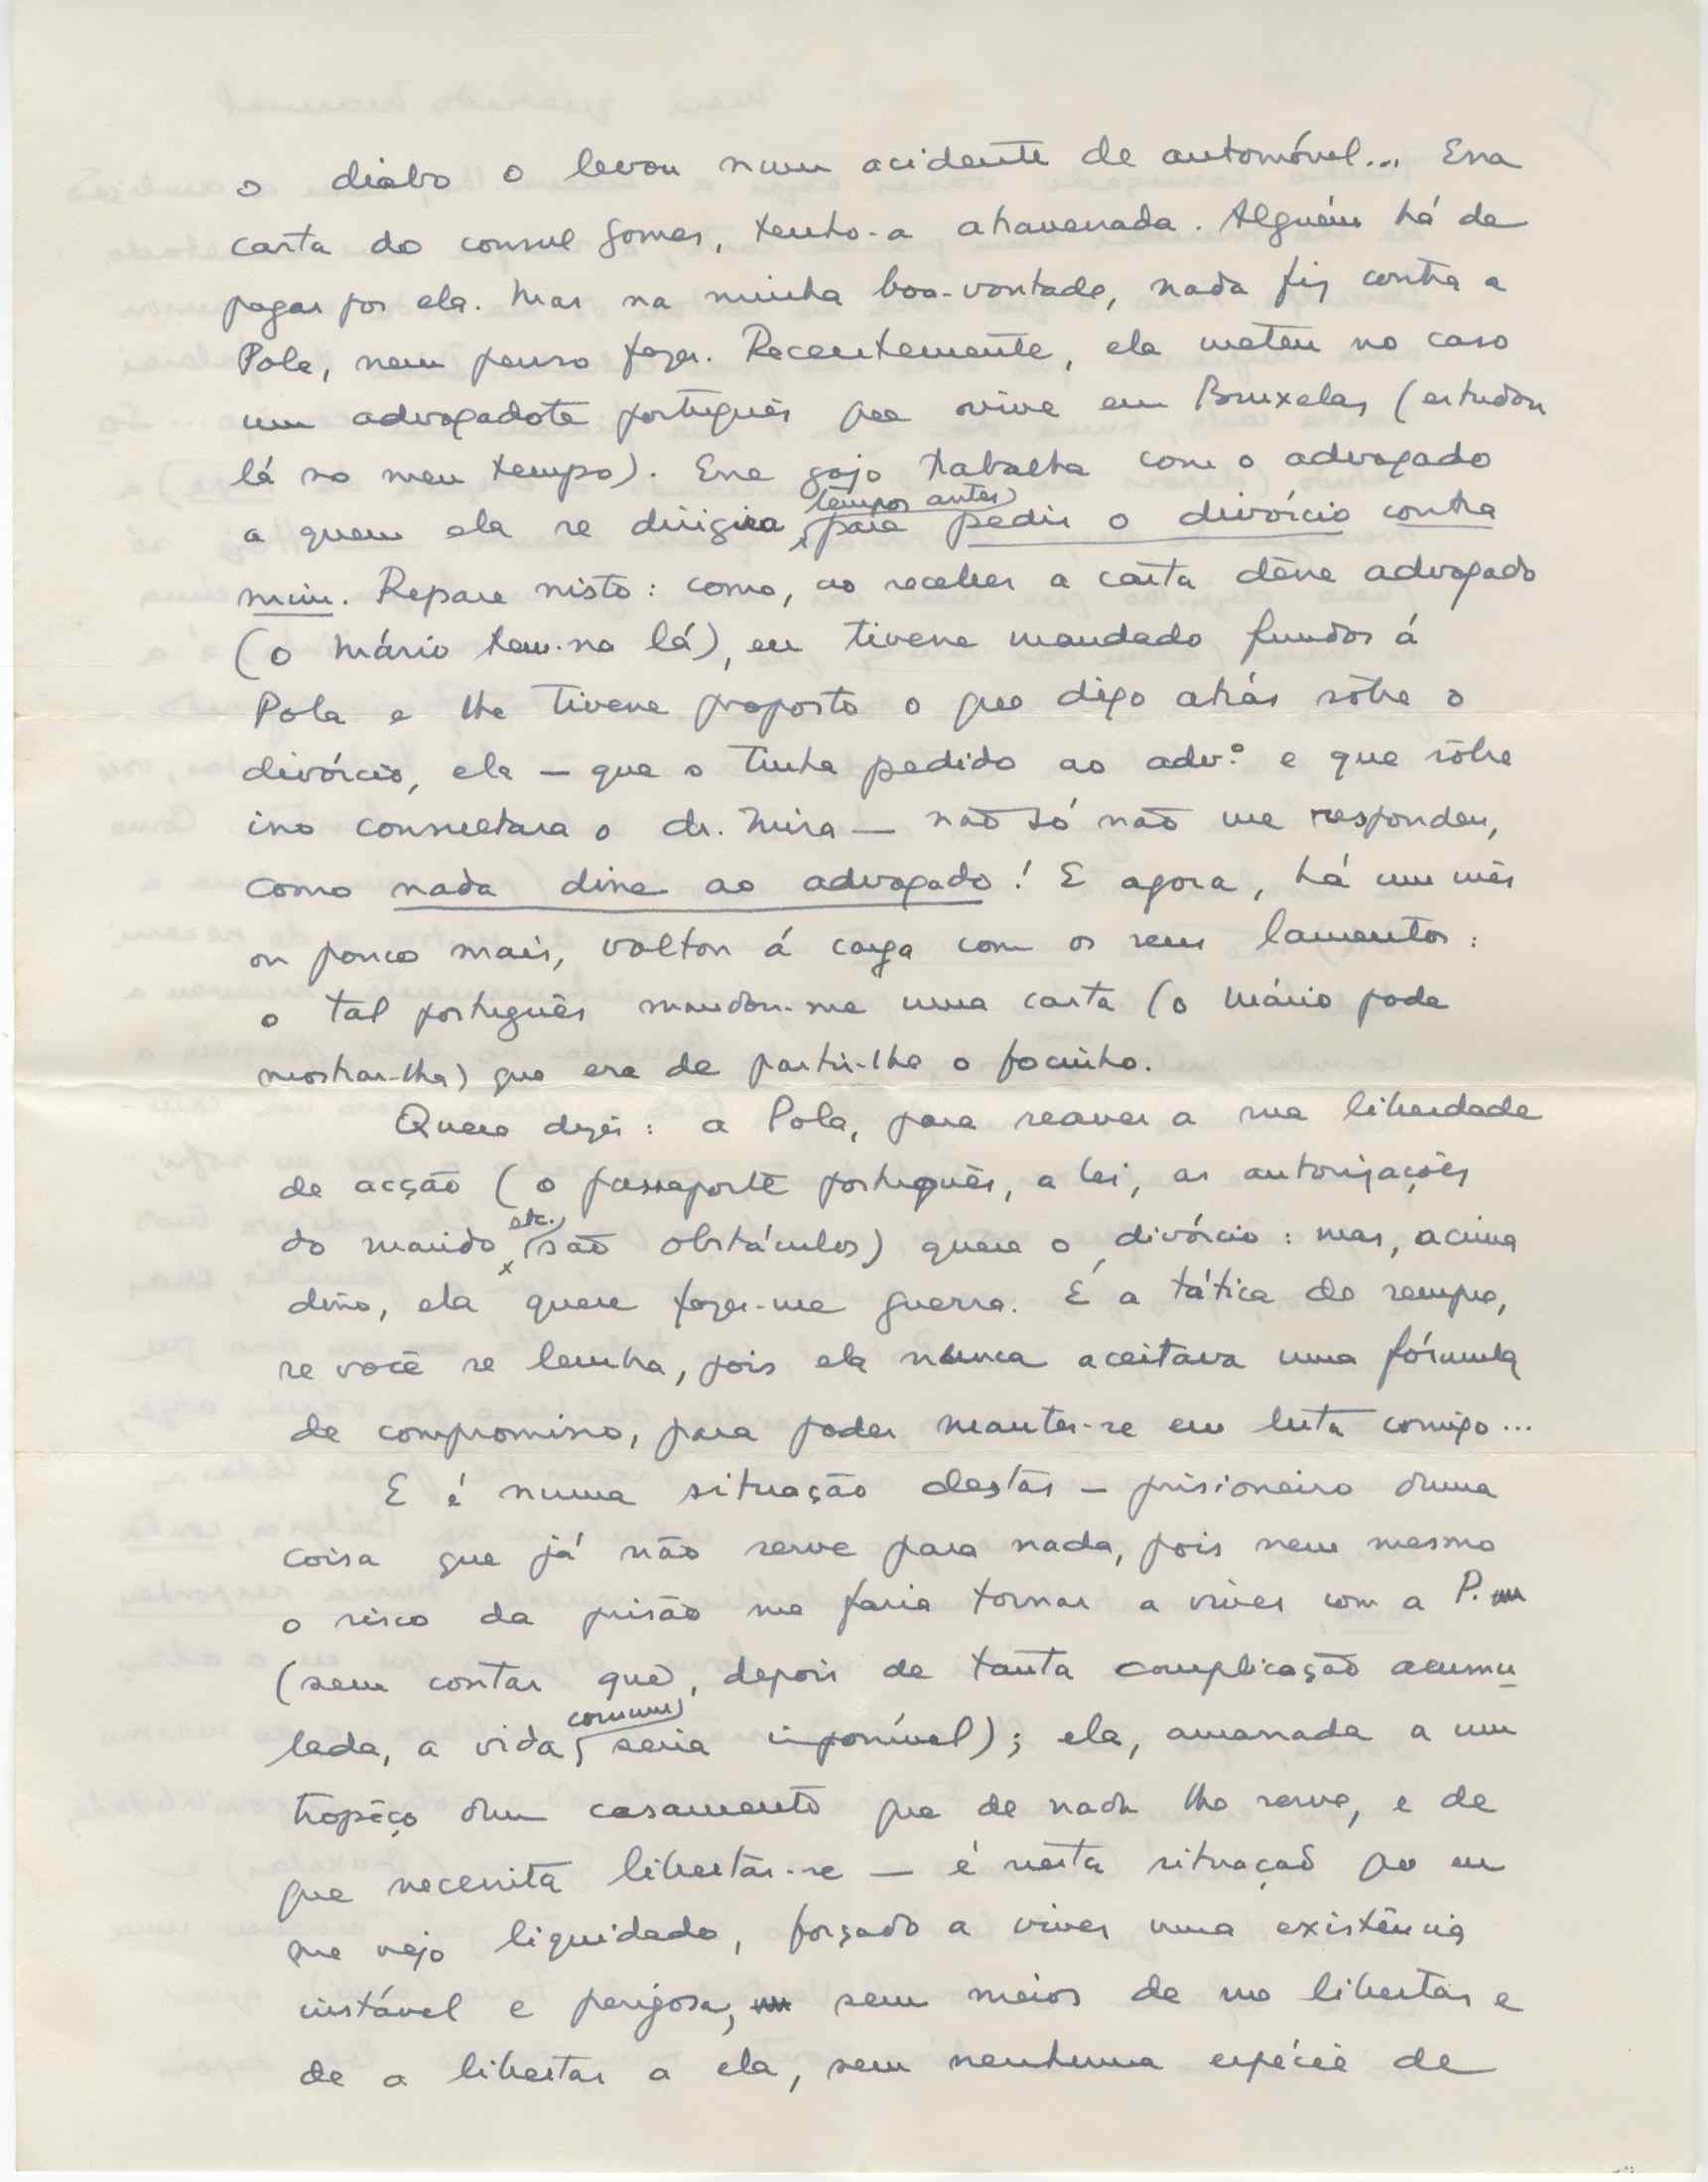 o diabo o levou num acidente de automóvel... Essa
carta do consul Gomes, tenho-a atravessada. Alguém há de
pagar por ela. Mas na minha boa-vontade, nada fiz contra a
Pola, nem penso fazer. Recentemente, ela meteu no caso
um advogadote português que vive em Bruxelas (estudou
lá no meu tempo). Esse gajo trabalha com o advogado
a quem ela se dirigira tempos antes para pedir o divórcio contra
mim. Repare nisto: como, ao receber a carta dêsse advogado
(o Mário tem-na lá), eu tivesse mandado fundos á
Pola e lhe tivesse proposto o que digo atrás sôbre o
divórcio, ela — que o tinha pedido ao adv.º e que sôbre
isso consultara o dr. Mira — não só não me respondeu,
como nada disse ao advogado! E agora, há um mês
ou pouco mais, voltou á carga com os seus lamentos:
o tal português mandou-me uma carta (o Mário pode
mostrar-lha) que era de partir-lhe o focinho.
Quero dizer: a Pola, para reaver a sua liberdade
de acção (o passaporte português, a lei, as autorizações
do marido, etc. são obstáculos) quere o divórcio: mas, acima
disso, ela quere fazer-me guerra. É a tática de sempre,
se você se lembra, pois ela nunca aceitava uma fórmula
de compromisso, para poder manter-se em luta comigo...
E é numa situação destas — prisioneiro duma
coisa que já não serve para nada, pois nem mesmo
o risco da prisão me faria tornar a viver com a P.
(sem contar que, depois de tanta complicação acumu-
lada, a vida comum seria impossível); ela, amarrada a um
tropêço dum casamento que de nada lhe serve, e de
que necessita libertar-se — é nesta situação que eu
me vejo liquidado, forçado a viver uma existência
instável e perigosa, sem meios de me libertar e
de a libertar a ela, sem nenhuma espécie de